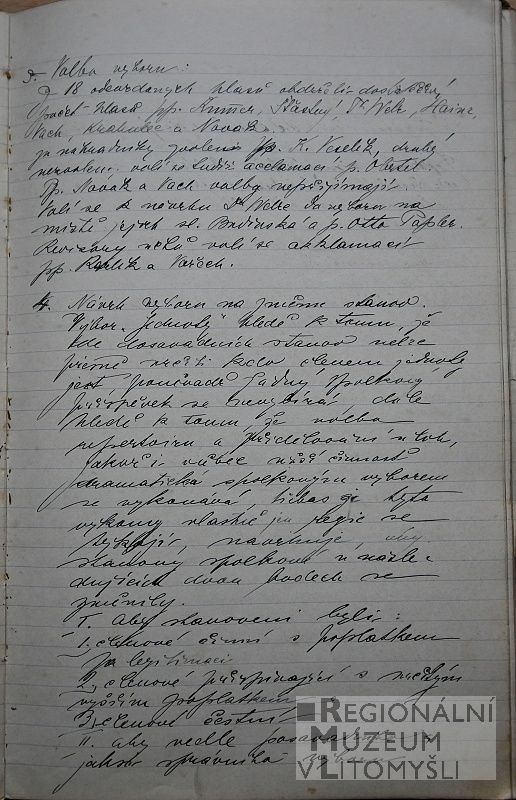 3. Volba výboru:
Z 18 odevzdaných hlasů obdrželi dostatečný
počet hlasů pp. Šťastný, Dr. Velc, Hainz,
Vach, a Novák.
Za náhradníky zvoleni pp. K. Veselík, druhý
nezvolen. volí se tudíž acclamací p.
Pp. Novák a Vach volby nepřijímají
Volí se k návrhu Dra Velce do výboru na
místě jejich sl. Brdinská a p. Otto Tapler.
Revisory účtů volí se akklamací
pp. a Vařech.
4. Návrh výboru na změnu stanov.
Výbor "Jednoty" hledě k tomu, že
dle dosavadních stanov nelze
přesně určiti kdo členem jednoty
jest poněvadž žádný spolkový
příspěvek se nevybírá dále
hledě k tomu, že volba
repertoiru a přidělování úloh,
jakož i vůbec užší činnost
dramatická spolkovým výborem
se vykonává třebas že tyto
výkony vlastně jen režie se
týkají, navrhuje, aby
stanovy spolkové v násle-
dujících dvou bodech se
změnily.
I. aby stanoveni byli:
1, členové činní s poplatkem
za legitimaci
2, členové přispívající s určitým
vyšším poplatkem
3, členové čestní
II. aby vedle
jakož správníka
REGIONÁLNÍ
MUZEUM
V LITOMYŠLI